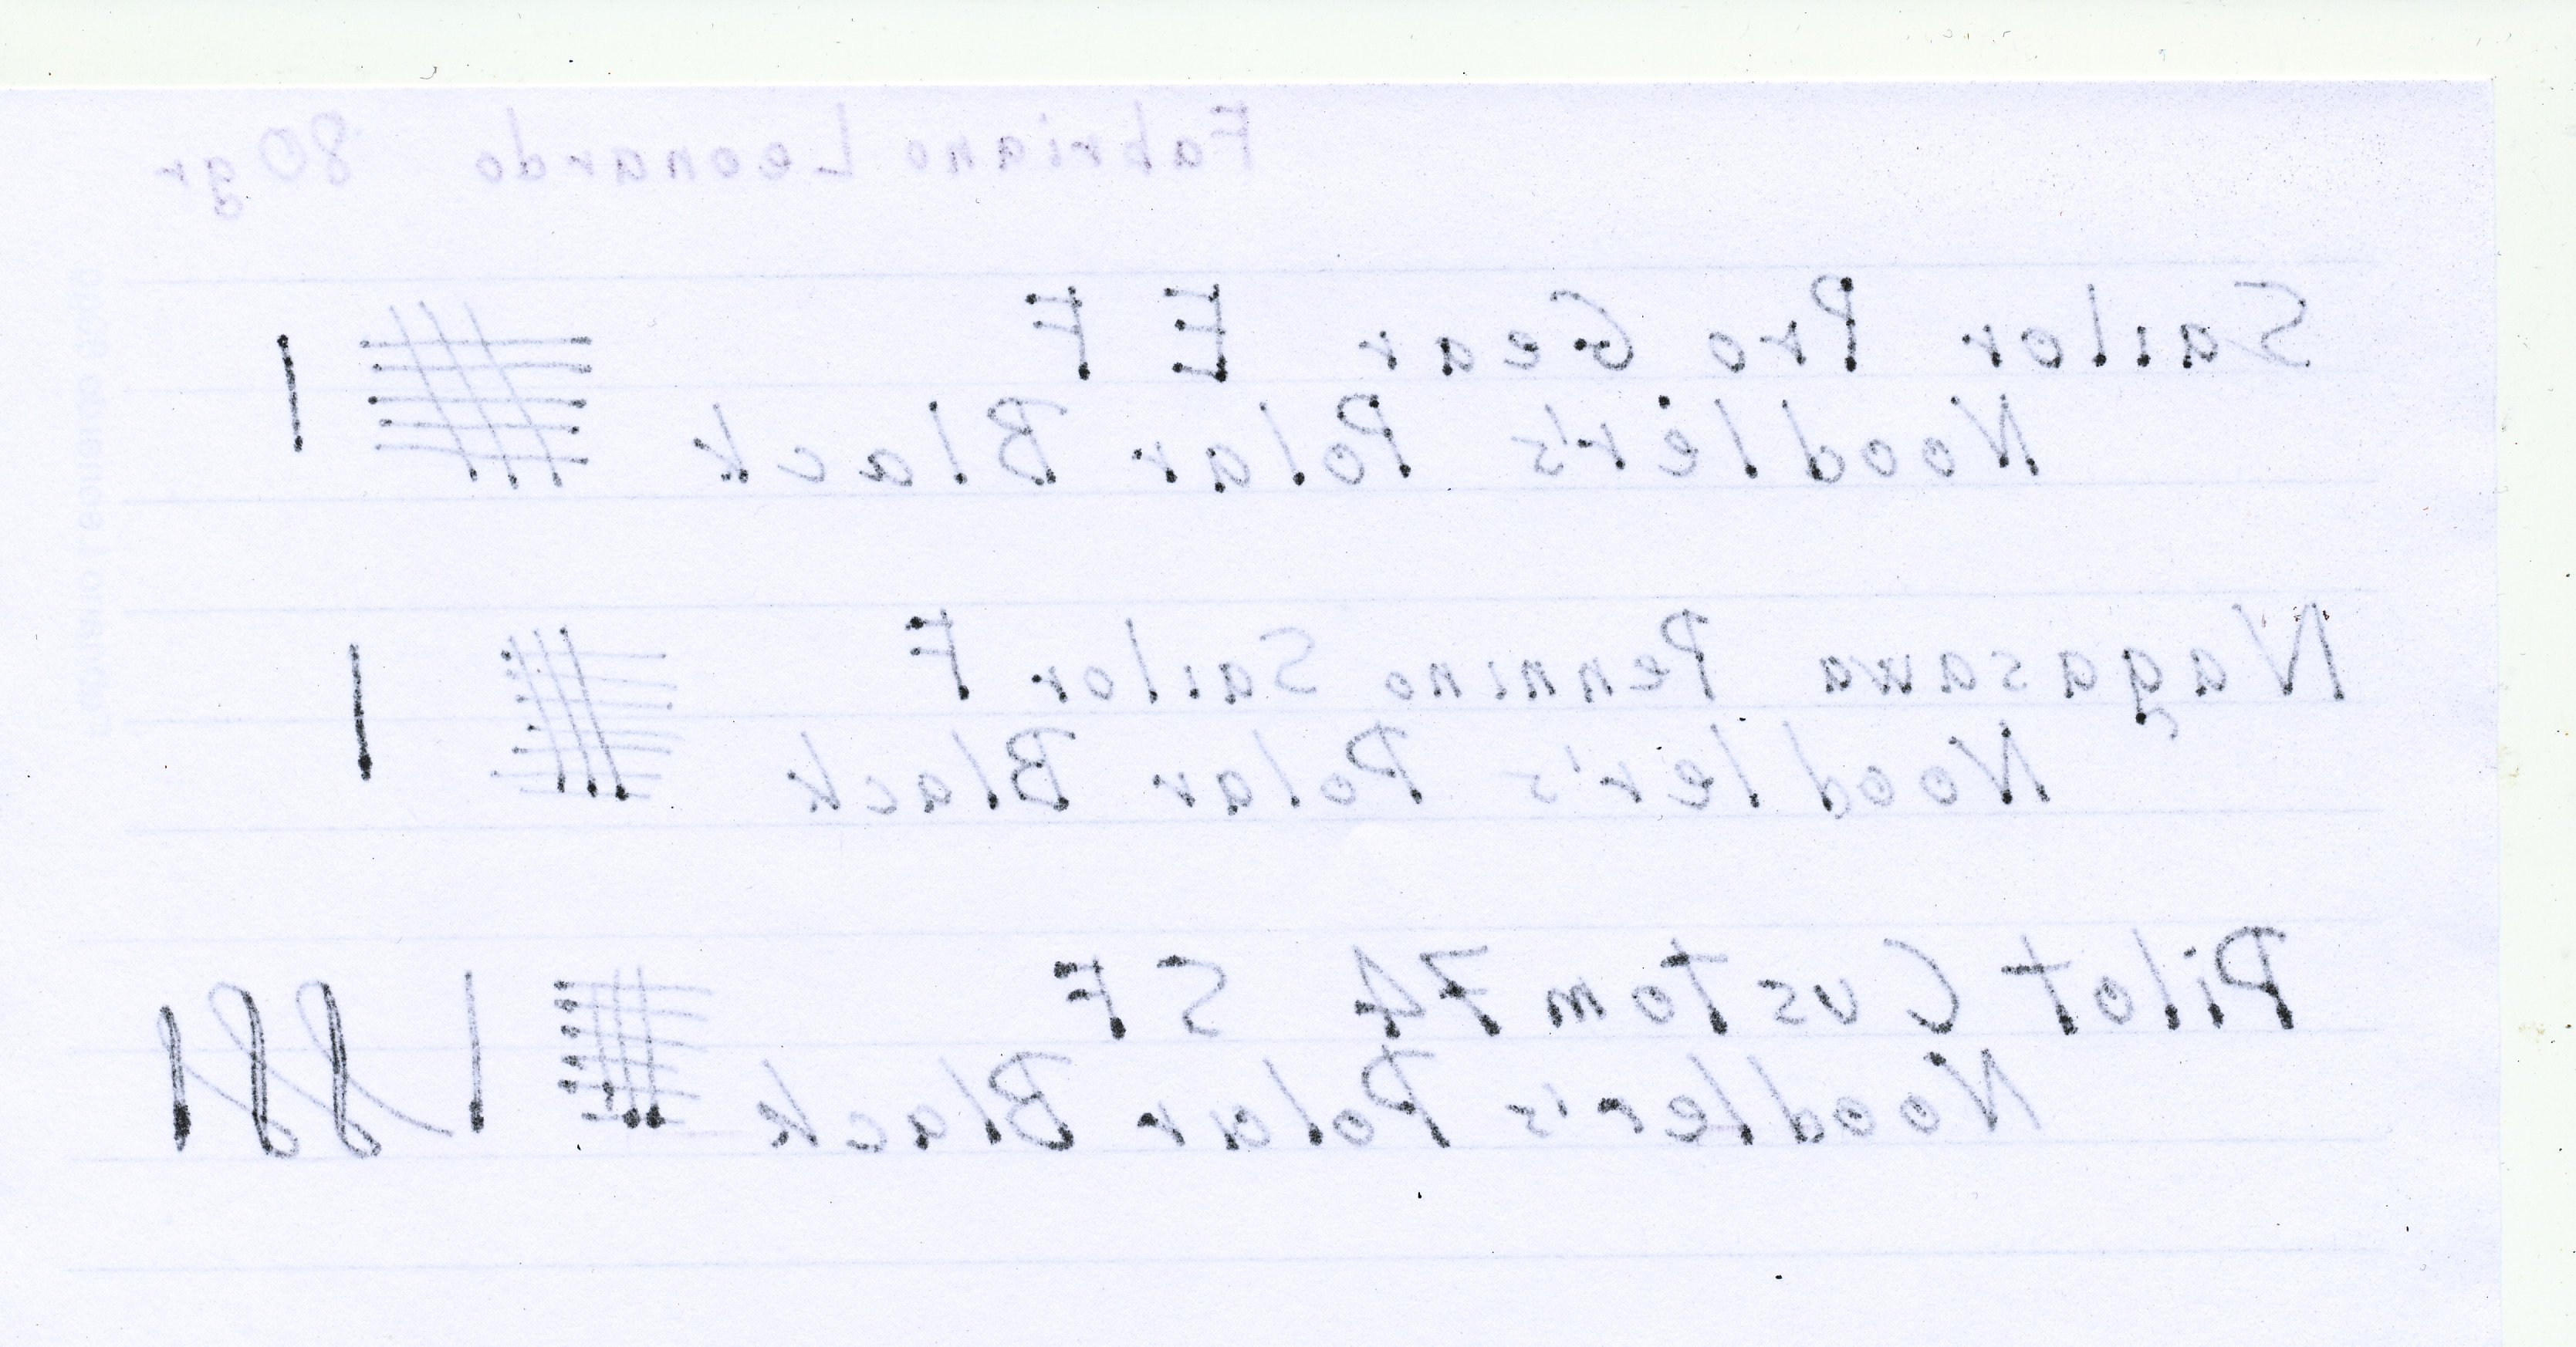 Fabriano Leonardo 80gr
Sailor Pro Gear EF
Noodler's Polar Black
Nagasawa Pennino Sailor F
Noodler's Polar Black
Pilot Custom 74 SF
Noodler's Polar Black